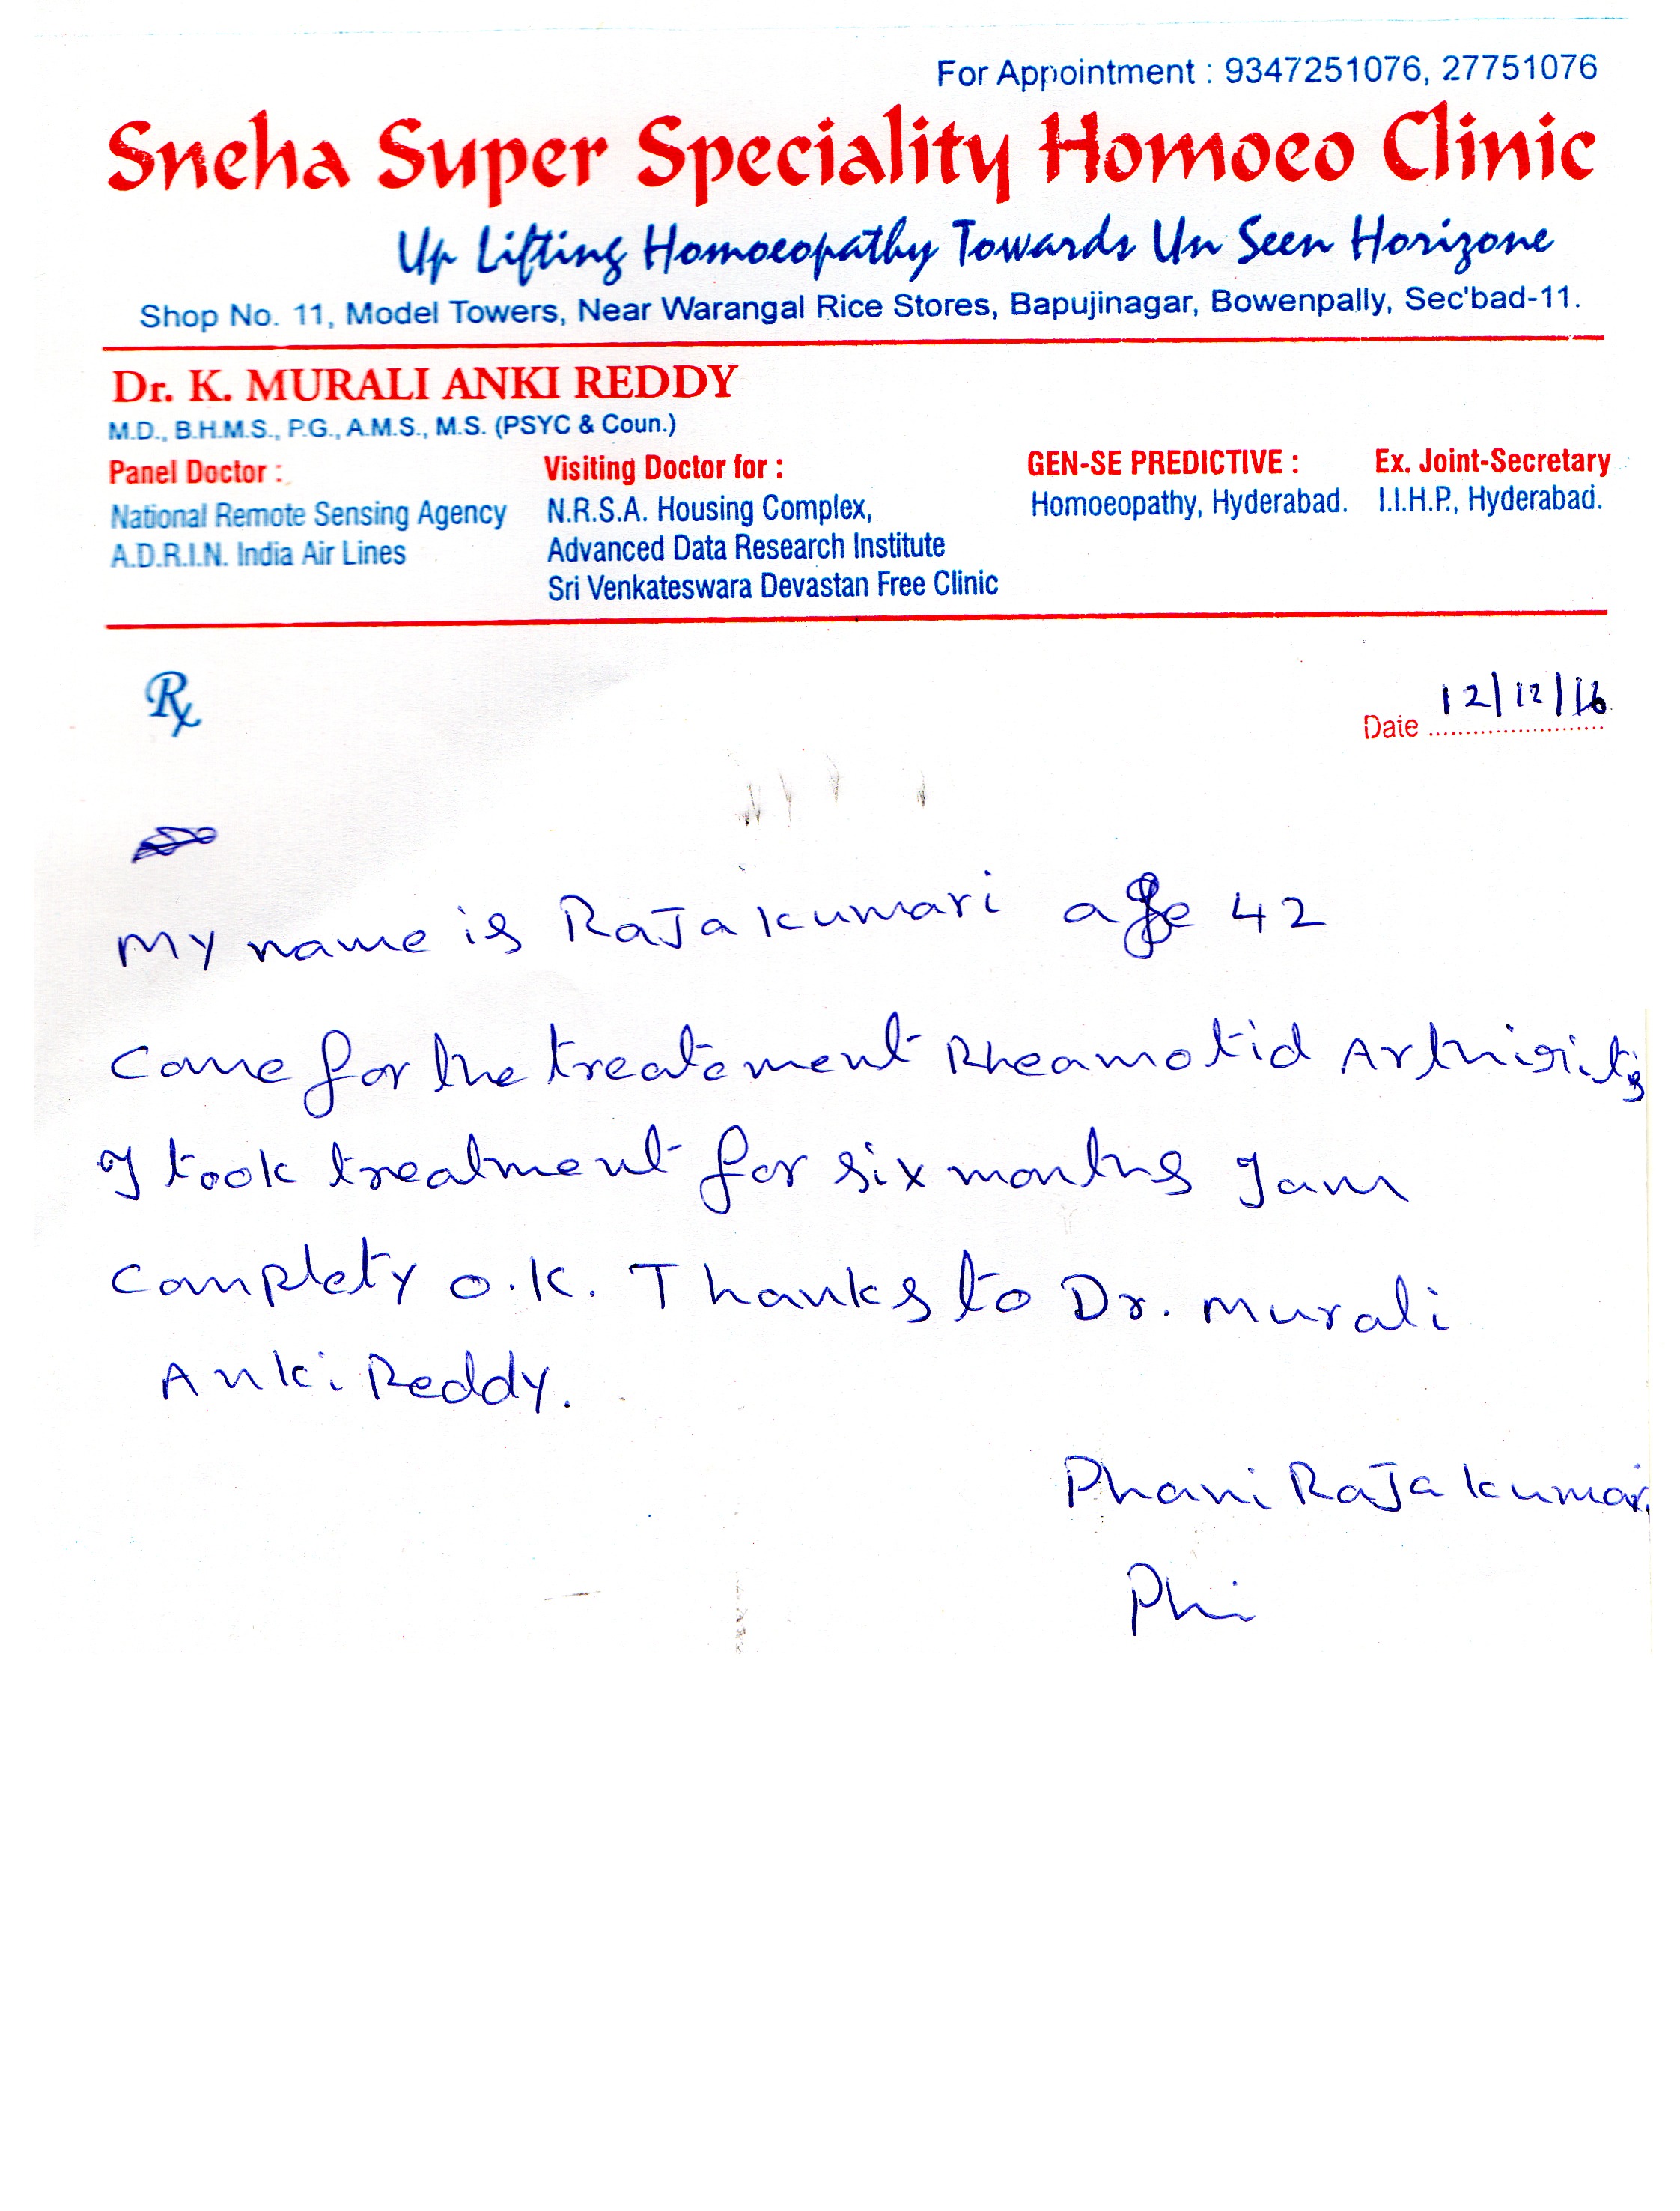 For Appointment : 9347251076, 27751076
Sneha Super Speciality Homoeo Clinic
Up Lifting Homoeopathy Towards Un Seen Horizone
Shop No. 11, Model Towers, Near Warangal Rice Stores, Bapujinagar, Bowenpally, Sec'bad-11.
Dr. K. MURALI ANKI REDDY
M.D., B.H.M.S., P.G., A.M.S., M.S. (PSYC & Coun.)
Panel Doctor :
National Remote Sensing Agency
A.D.R.I.N. India Air Lines
Visiting Doctor for :
N.R.S.A. Housing Complex,
Advanced Data Research Institute
Sri Venkateswara Devastan Free Clinic
GEN-SE PREDICTIVE :
Homoeopathy, Hyderabad.
Ex. Joint-Secretary
I.I.H.P., Hyderabad.
Rx
Date 12/12/16
My name is RaJakumari age 42
Come for the treatement Rheamotid Arthisitis
I took treatment for six months I am
Complety O.K. Thanks to Dr. Murali
Anki Reddy.
Phani RaJakumari
Phi